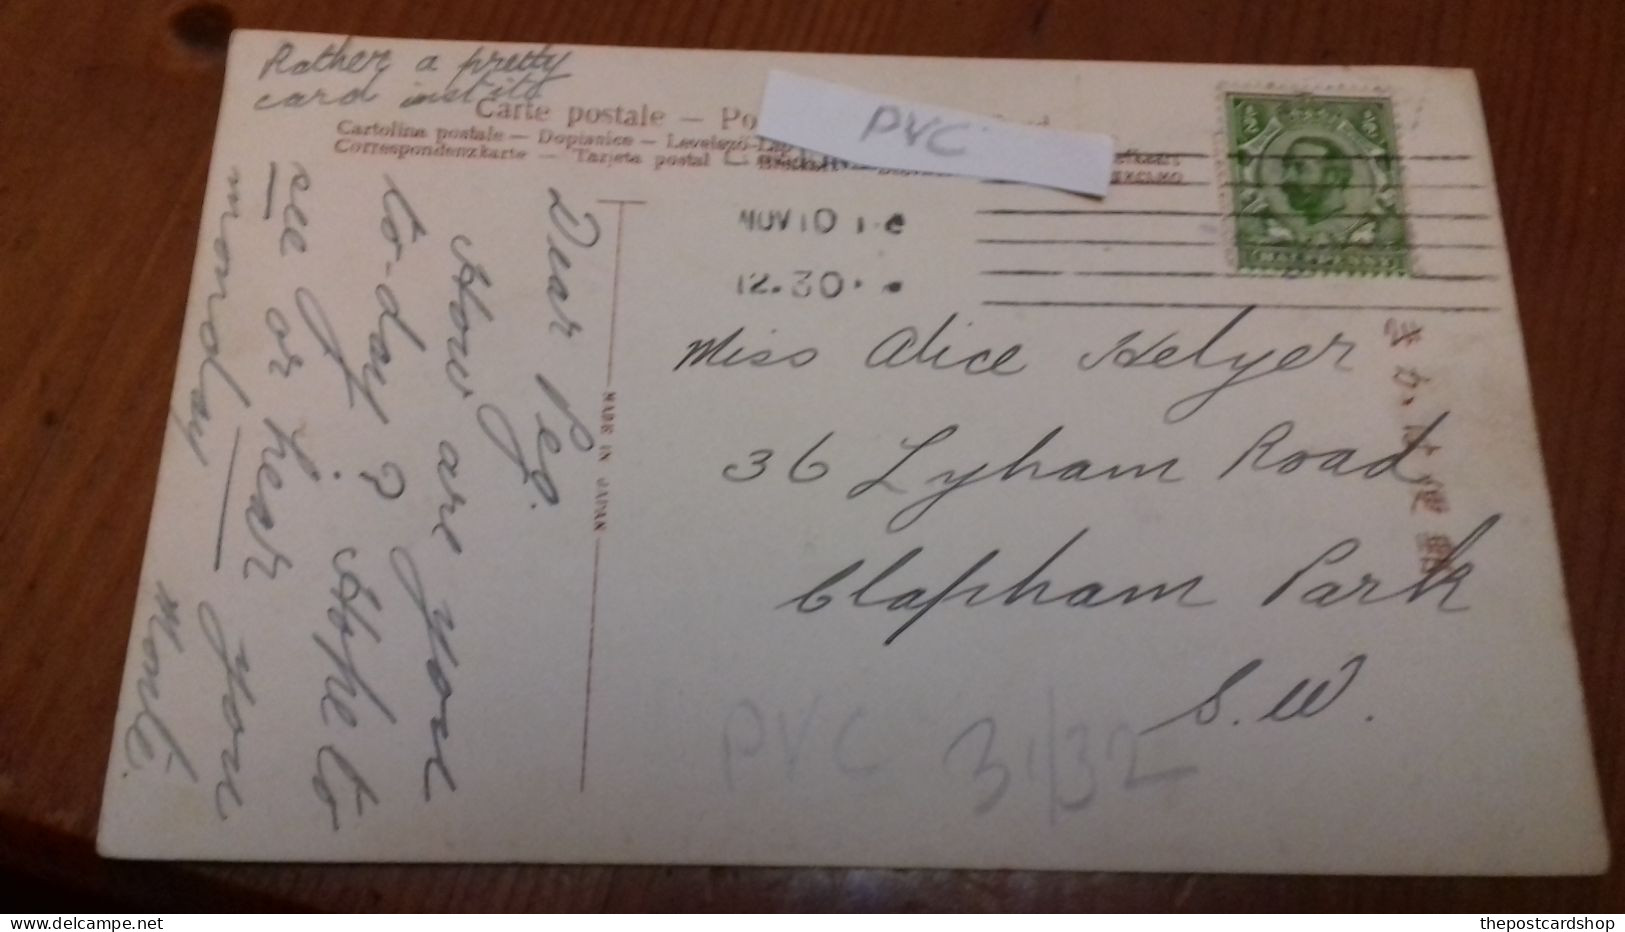 Rather a pretty
card isn't it?
Carte postale — Po
Cartolina postale — Dopisnice — Levelező-Lap
Correspondenzkarte — Tarjeta postal
PVC
NOV 10
12.30
HALFPENNY
Dear Peg.
How are you
to-day? Hope to
see or hear from you
monday
MADE IN JAPAN
Miss Alice Helyer
36 Lyham Road
Clapham Park
S.W.
PVC 31/32
thepostcardshop